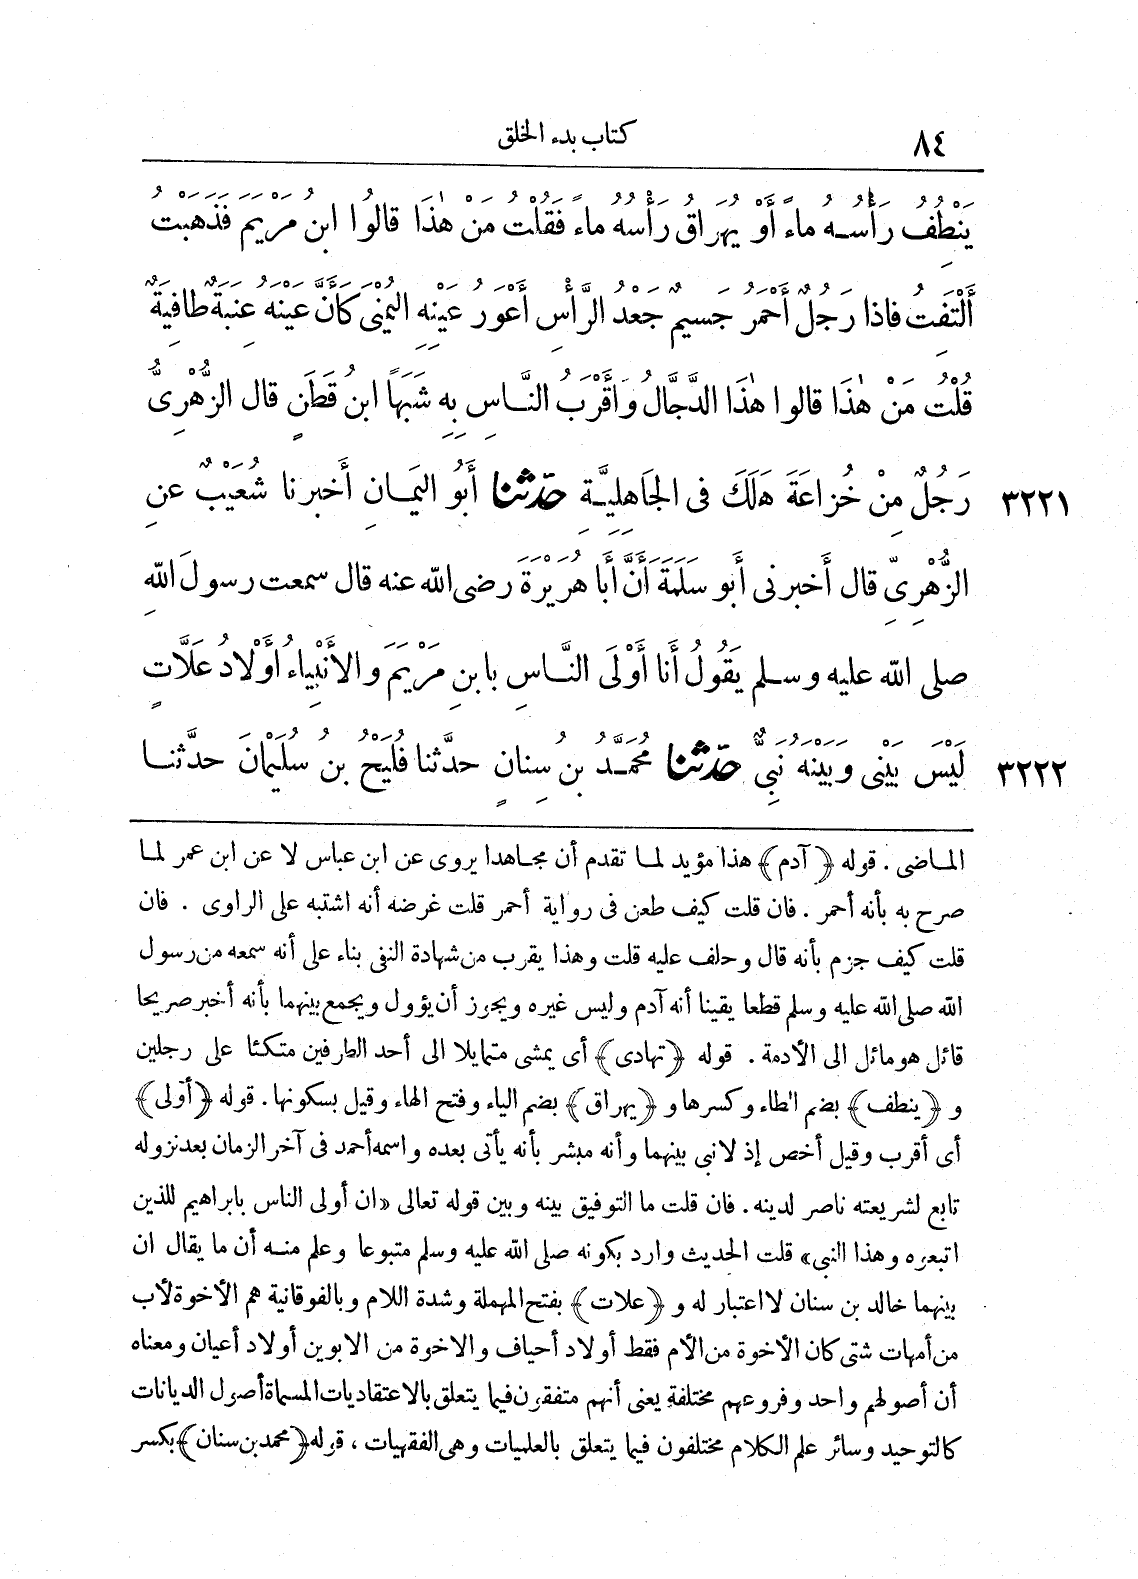 ٨٤ كتاب بدء الخلق
يَنْطُفُ رَأْسُهُ مَاءً أَوْ يُهَرَاقُ رَأْسُهُ مَاءً فَقُلْتُ مَنْ هٰذَا قَالُوا ابْنُ مَرْيَمَ فَذَهَبْتُ
أَلْتَفِتُ فَاذا رَجُلٌ أَحْمَرُ جَسِيمٌ جَعْدُ الرَّأْسِ أَعْوَرُ عَيْنِهِ الْيُمْنَى كَأَنَّ عَيْنَهُ عِنَبَةٌ طَافِيَةٌ
قُلْتُ مَنْ هٰذَا قالوا هٰذَا الدَّجَّالُ وَأَقْرَبُ النَّاسِ بِهِ شَبَهًا ابْنُ قَطَنٍ قال الزُّهْرِىُّ
٣٢٢١ رَجُلٌ مِنْ خُزَاعَةَ هَلَكَ فِى الْجَاهِلِيَّةِ حَدَّثَنَا أَبُو الْيَمَانِ أَخبرنا شُعَيْبٌ عَنِ
الزُّهْرِىِّ قال أَخبرنى أَبو سَلَمَةَ أَنَّ أَبَا هُرَيْرَةَ رضى الله عنه قال سمعت رسولَ الله
صلى الله عليه وسلم يَقُولُ أَنَا أَوْلَى النَّاسِ بِابْنِ مَرْيَمَ وَالأَنْبِيَاءُ أَوْلَادُ عَلَّاتٍ
٣٢٢٢ لَيْسَ بَيْنِى وَبَيْنَهُ نَبِىٌّ حَدَّثَنَا مُحَمَّدُ بْنُ سِنَانٍ حدَّثنا فُلَيْحُ بْنُ سُلَيْمَانَ حدَّثنا
الماضى . قوله ﴿آدم﴾ هذا مؤيد لما تقدم أن مجاهدا يروى عن ابن عباس لا عن ابن عمر لما
صرح به بأنه أحمر . فان قلت كيف طعن فى رواية أحمر قلت غرضه أنه اشتبه على الراوى . فان
قلت كيف جزم بأنه قال وحلف عليه قلت وهذا يقرب من شهادة النفى بناء على أنه سمعه من رسول
الله صلى الله عليه وسلم قطعا يقينا أنه آدم وليس غيره ويجوز أن يؤول ويجمع بينهما بأنه أخبر صريحا
قائل هو مائل الى الأدمة . قوله ﴿تهادى﴾ أى يمشى متمايلا الى أحد الطرفين متكئا على رجلين
و ﴿ينطف﴾ بضم الطاء وكسرها و ﴿يهراق﴾ بضم الياء وفتح الهاء وقيل بسكونها . قوله ﴿أولى﴾
أى أقرب وقيل أخص إذ لا نبى بينهما وأنه مبشر بأنه يأتى بعده واسمه أحمد فى آخر الزمان بعد نزوله
تابع لشريعته ناصر لدينه . فان قلت ما التوفيق بينه وبين قوله تعالى «ان أولى الناس بابراهيم للذين
اتبعوه وهذا النبى» قلت الحديث وارد بكونه صلى الله عليه وسلم متبوعا وعلم منه أن ما يقال ان
بينهما خالد بن سنان لا اعتبار له و ﴿علات﴾ بفتح المهملة وشدة اللام وبالفوقانية هم الأخوة لأب
من أمهات شتى كان الأخوة من الأم فقط أولاد أحياف والاخوة من الابوين أولاد أعيان ومعناه
أن أصولهم واحد وفروعهم مختلفة يعنى أنهم متفقون فيما يتعلق بالاعتقاديات المسماة أصول الديانات
كالتوحيد وسائر علم الكلام مختلفون فيما يتعلق بالعمليات وهى الفقهيات ، قوله ﴿محمد بن سنان﴾ بكسر